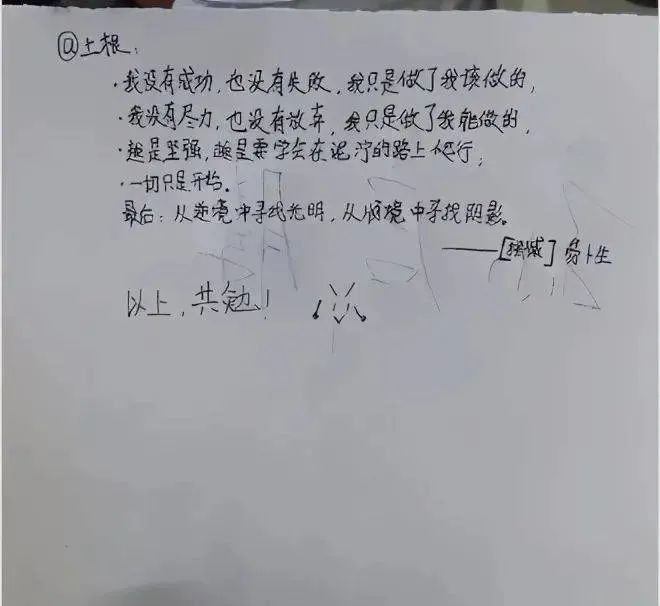 @土根:
·我没有成功,也没有失败,我只是做了我该做的,
·我没有尽力,也没有放弃,我只是做了我能做的,
·越是坚强,越是要学会在泥泞的路上爬行;
·一切只是开始。
最后:从逆境中寻找光明,从顺境中寻找阴影。
——[挪威] 易卜生
以上,共勉!